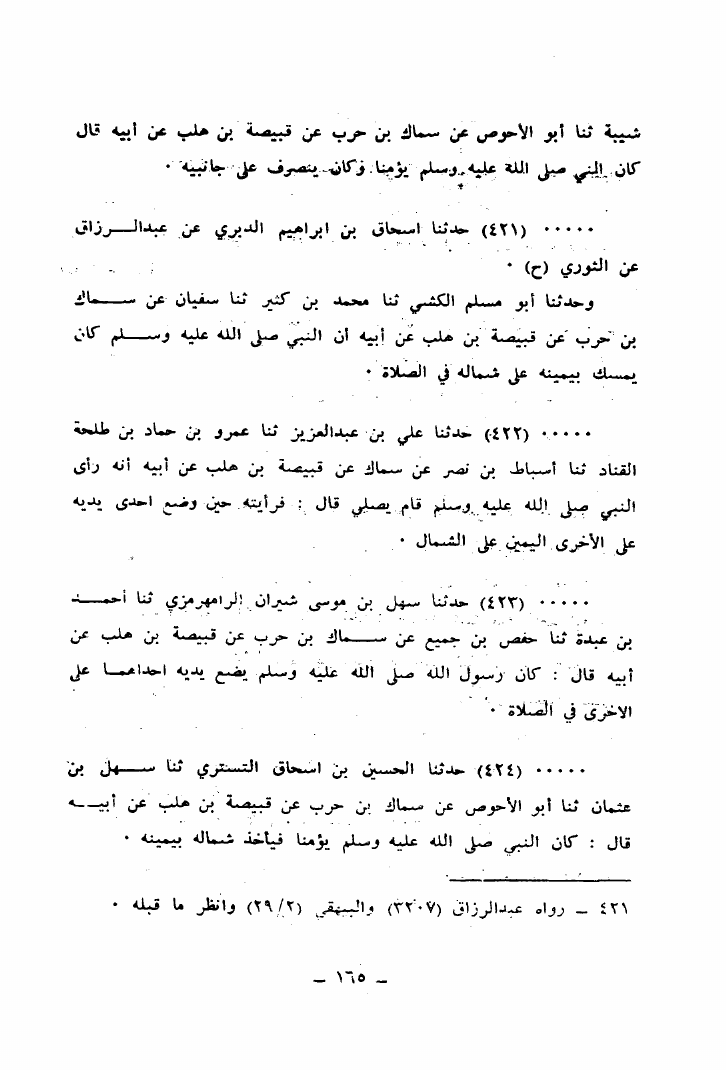 شيبة ثنا أبو الأحوص عن سماك بن حرب عن قبيصة بن هلب عن أبيه قال
كان النبي صلى الله عليه وسلم يؤمنا وكان ينصرف على جانبيه ٠
٠٠٠٠٠ (٤٢١) حدثنا اسحاق بن ابراهيم الدبري عن عبدالـــرزاق
عن الثوري (ح) ٠
وحدثنا أبو مسلم الكشي ثنا محمد بن كثير ثنا سفيان عن ســـماك
بن حرب عن قبيصة بن هلب عن أبيه أن النبي صلى الله عليه وســـلم كان
يمسك بيمينه على شماله في الصلاة ٠
٠٠٠٠٠ (٤٢٢) حدثنا علي بن عبدالعزيز ثنا عمرو بن حماد بن طلحة
القناد ثنا أسباط بن نصر عن سماك عن قبيصة بن هلب عن أبيه أنه رأى
النبي صلى الله عليه وسلم قام يصلي قال : فرأيته حين وضع احدى يديه
على الأخرى اليمين على الشمال ٠
٠٠٠٠٠ (٤٢٣) حدثنا سهل بن موسى شيران الرامهرمزي ثنا أحمـــد
بن عبدة ثنا حفص بن جميع عن ســـماك بن حرب عن قبيصة بن هلب عن
أبيه قال : كان رسول الله صلى الله عليه وسلم يضع يديه احداهمـــا على
الاخرى في الصلاة ٠
٠٠٠٠٠ (٤٢٤) حدثنا الحسين بن اسحاق التستري ثنا ســـهل بن
عثمان ثنا أبو الأحوص عن سماك بن حرب عن قبيصة بن هلب عن أبيـــه
قال : كان النبي صلى الله عليه وسلم يؤمنا فيأخذ شماله بيمينه ٠
٤٢١ ـ رواه عبدالرزاق (٣٢٠٧) والبيهقي (٢٩/٢) وانظر ما قبله ٠
ـ ١٦٥ ـ